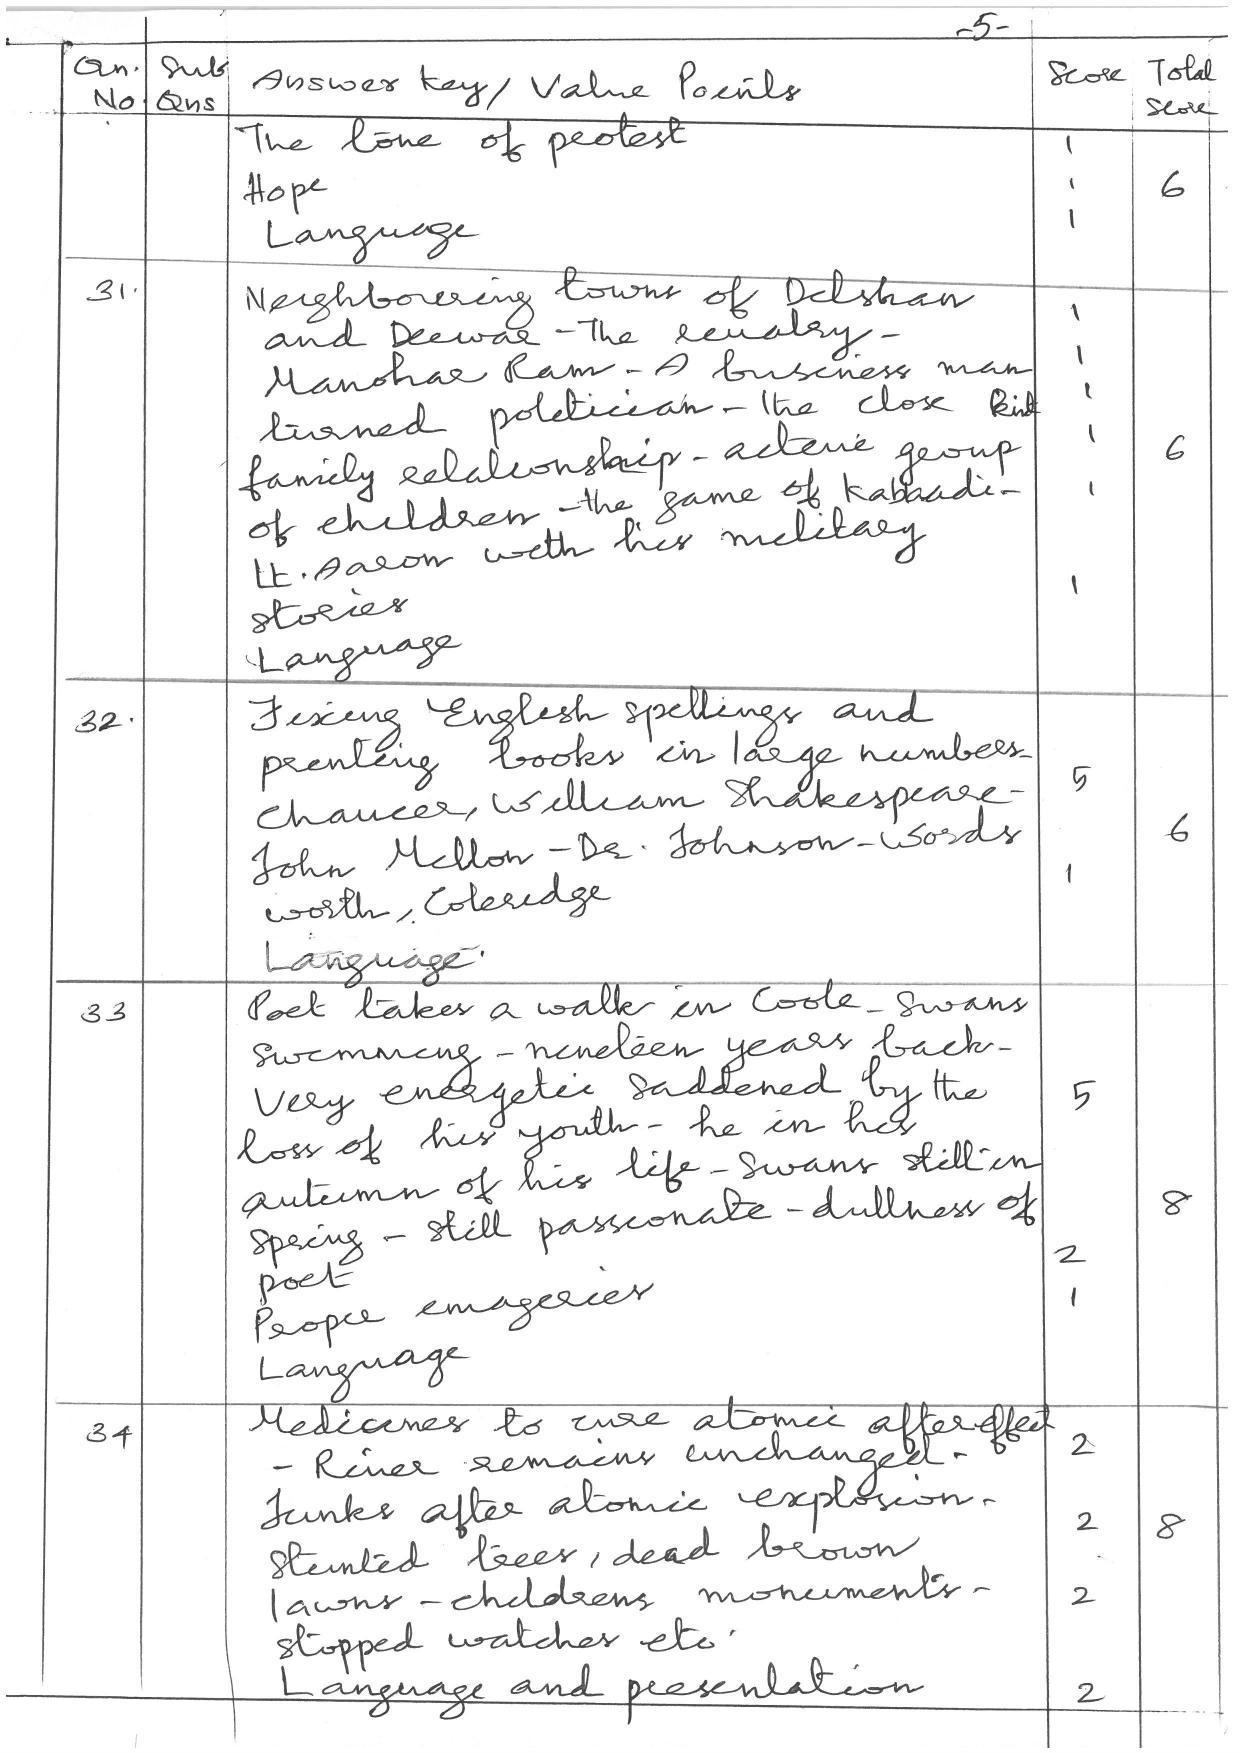 -5-
Qn. No. Sub Qns Answer key/ Value Points Score Total Score
The tone of protest 1
Hope 1 6
Language 1
31. Neighbouring towns of Dilshan 1
and Deewar - The rivalry - 1
Manohar Ram - A business man 1
turned politician - the close knit 1
family relationship - active group 6
of children - the game of kabaadi - 1
Lt. Aaron with his military
stories 1
Language
32. Fixing English spellings and
printing books in large numbers - 5
Chaucer, William Shakespeare - 6
John Milton - Dr. Johnson - Words 1
worth, Coleridge
Language.
33 Poet takes a walk in Coole - Swans
swimming - nineteen years back -
Very energetic saddened by the 5
loss of his youth - he in his
autumn of his life - Swans still in
spring - still passionate - dullness of 8
poet 2
Proper imageries 1
Language
34 Medicines to cure atomic aftereffect 2
- River remains unchanged -
Junks after atomic explosion - 2 8
stunted trees, dead brown
lawns - childrens monuments - 2
stopped watches etc.
Language and presentation 2